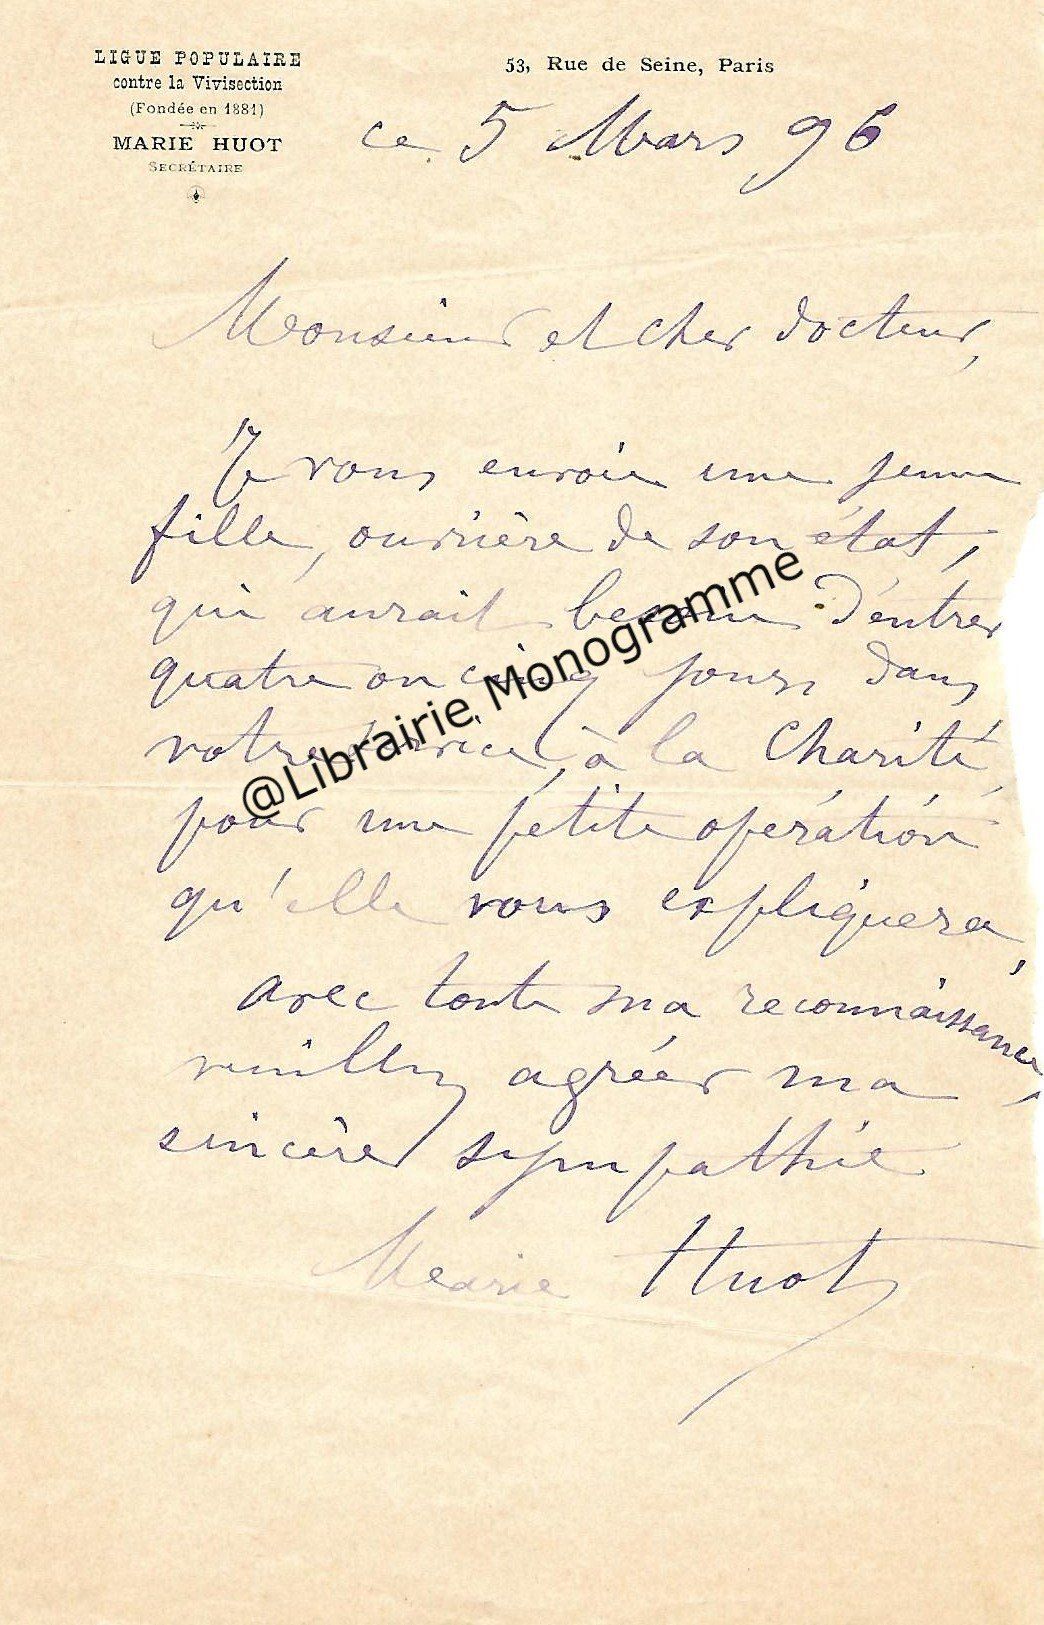 LIGUE POPULAIRE
contre la Vivisection
(Fondée en 1881)
MARIE HUOT
SECRÉTAIRE
53, Rue de Seine, Paris
ce 5 Mars 96
Monsieur et cher docteur,
Je vous envoie une jeune
fille, ouvrière de son état,
qui aurait besoin d'entrer
quatre ou cinq jours dans
votre service, à la Charité,
pour une petite opération
qu'elle vous expliquera,
avec toute ma reconnaissance,
veuillez agréer ma
sincère sympathie
Marie Huot
@Librairie Monogramme